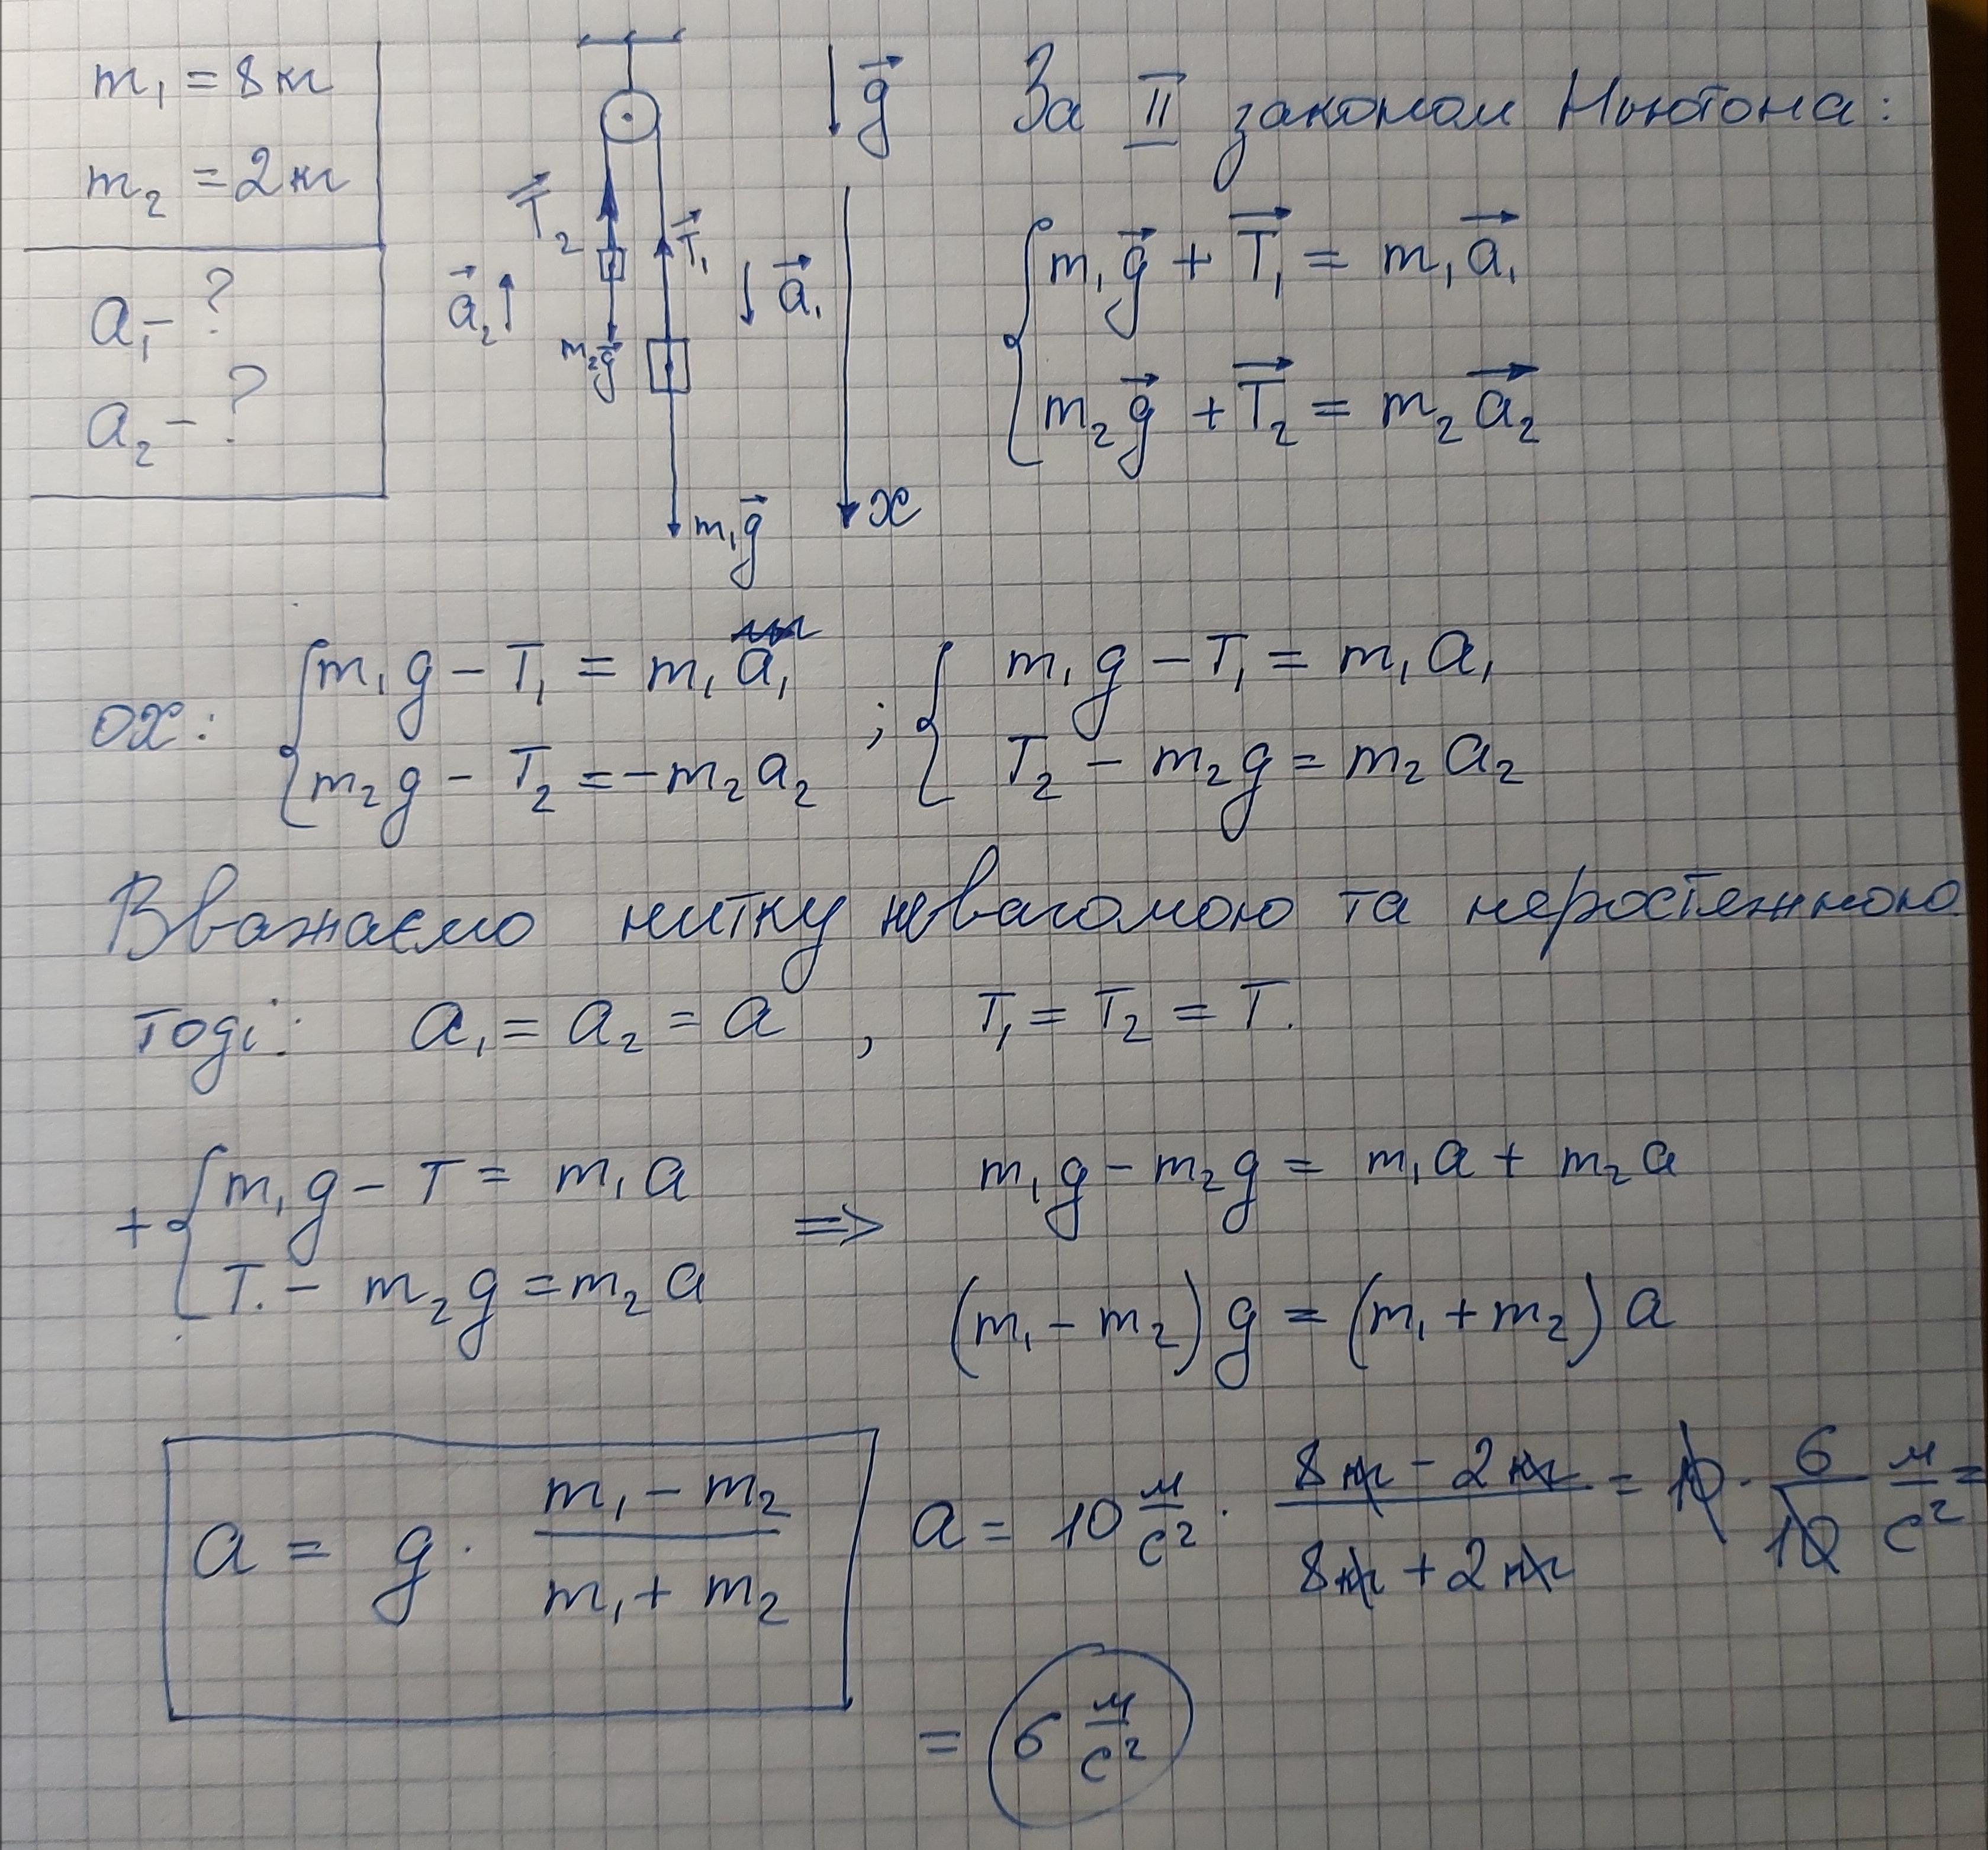 m₁ = 8кг
m₂ = 2кг
a₁ - ?
a₂ - ?
T⃗₂
T⃗₁
a⃗₂
a⃗₁
m₂g⃗
m₁g⃗
g⃗
x
За II законом Ньютона:
m₁g⃗ + T⃗₁ = m₁a⃗₁
m₂g⃗ + T⃗₂ = m₂a⃗₂
OX: { m₁g - T₁ = m₁a₁ ; { m₁g - T₁ = m₁a₁
m₂g - T₂ = -m₂a₂ T₂ - m₂g = m₂a₂
Вважаємо нитку невагомою та неростяжною
тоді: a₁ = a₂ = a , T₁ = T₂ = T.
+ { m₁g - T = m₁a => m₁g - m₂g = m₁a + m₂a
T - m₂g = m₂a (m₁ - m₂)g = (m₁ + m₂)a
a = g · (m₁ - m₂)/(m₁ + m₂) a = 10 м/с² · (8кг - 2кг)/(8кг + 2кг) = 10 · 6/10 м/с² =
= 6 м/с²